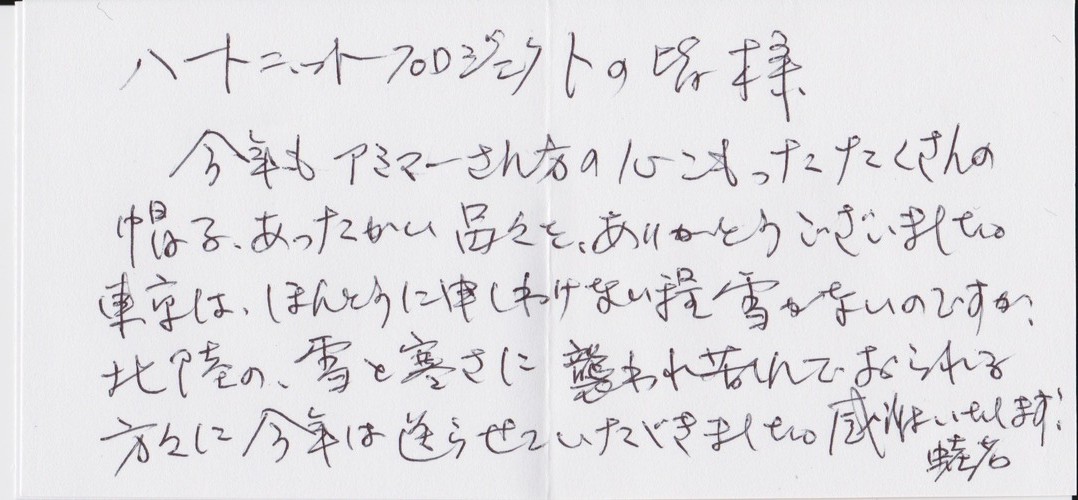 ハートニットプロジェクトの皆様
今年もアミマーさん方の心こもったたくさんの
帽子、あったかい品々を、ありがとうございました。
東京は、ほんとうに申しわけない程雪がないのですが、
北陸の、雪と寒さに襲われ苦しんでおられる
方々に今年は送らせていただきました。感謝いたします!
蛯名